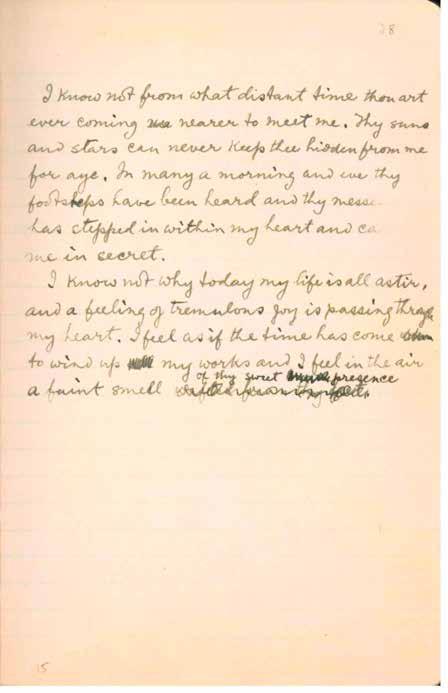 28
I know not from what distant time thou art
ever coming nearer to meet me. Thy suns
and stars can never keep thee hidden from me
for aye. In many a morning and eve thy
footsteps have been heard and thy messe
has stepped in within my heart and ca
me in secret.
I know not why today my life is all astir,
and a feeling of tremulous joy is passing through
my heart. I feel as if the time has come
to wind up my works and I feel in the air
of thy sweet presence
a faint smell
15